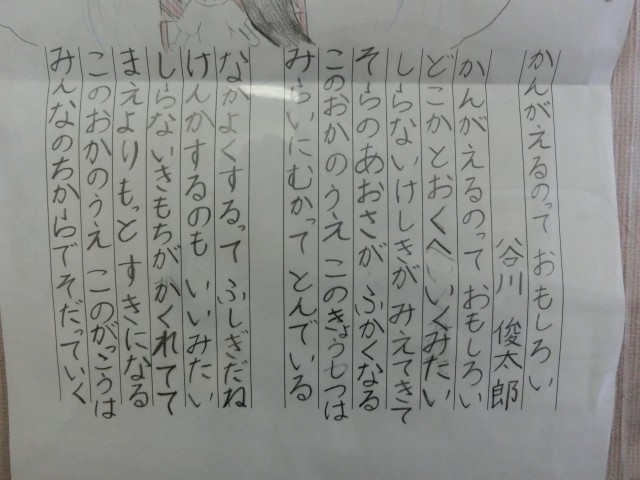 かんがえるのって おもしろい
谷川 俊太郎
かんがえるのって おもしろい
どこかとおくへ いくみたい
しらないけしきが みえてきて
そらのあおさが ふかくなる
このおかのうえ このきょうしつは
みらいにむかって とんでいる
なかよくするって ふしぎだね
けんかするのも いいみたい
しらないきもちが かくれてて
まえより もっと すきになる
このおかのうえ このがっこうは
みんなのちからで そだっていく